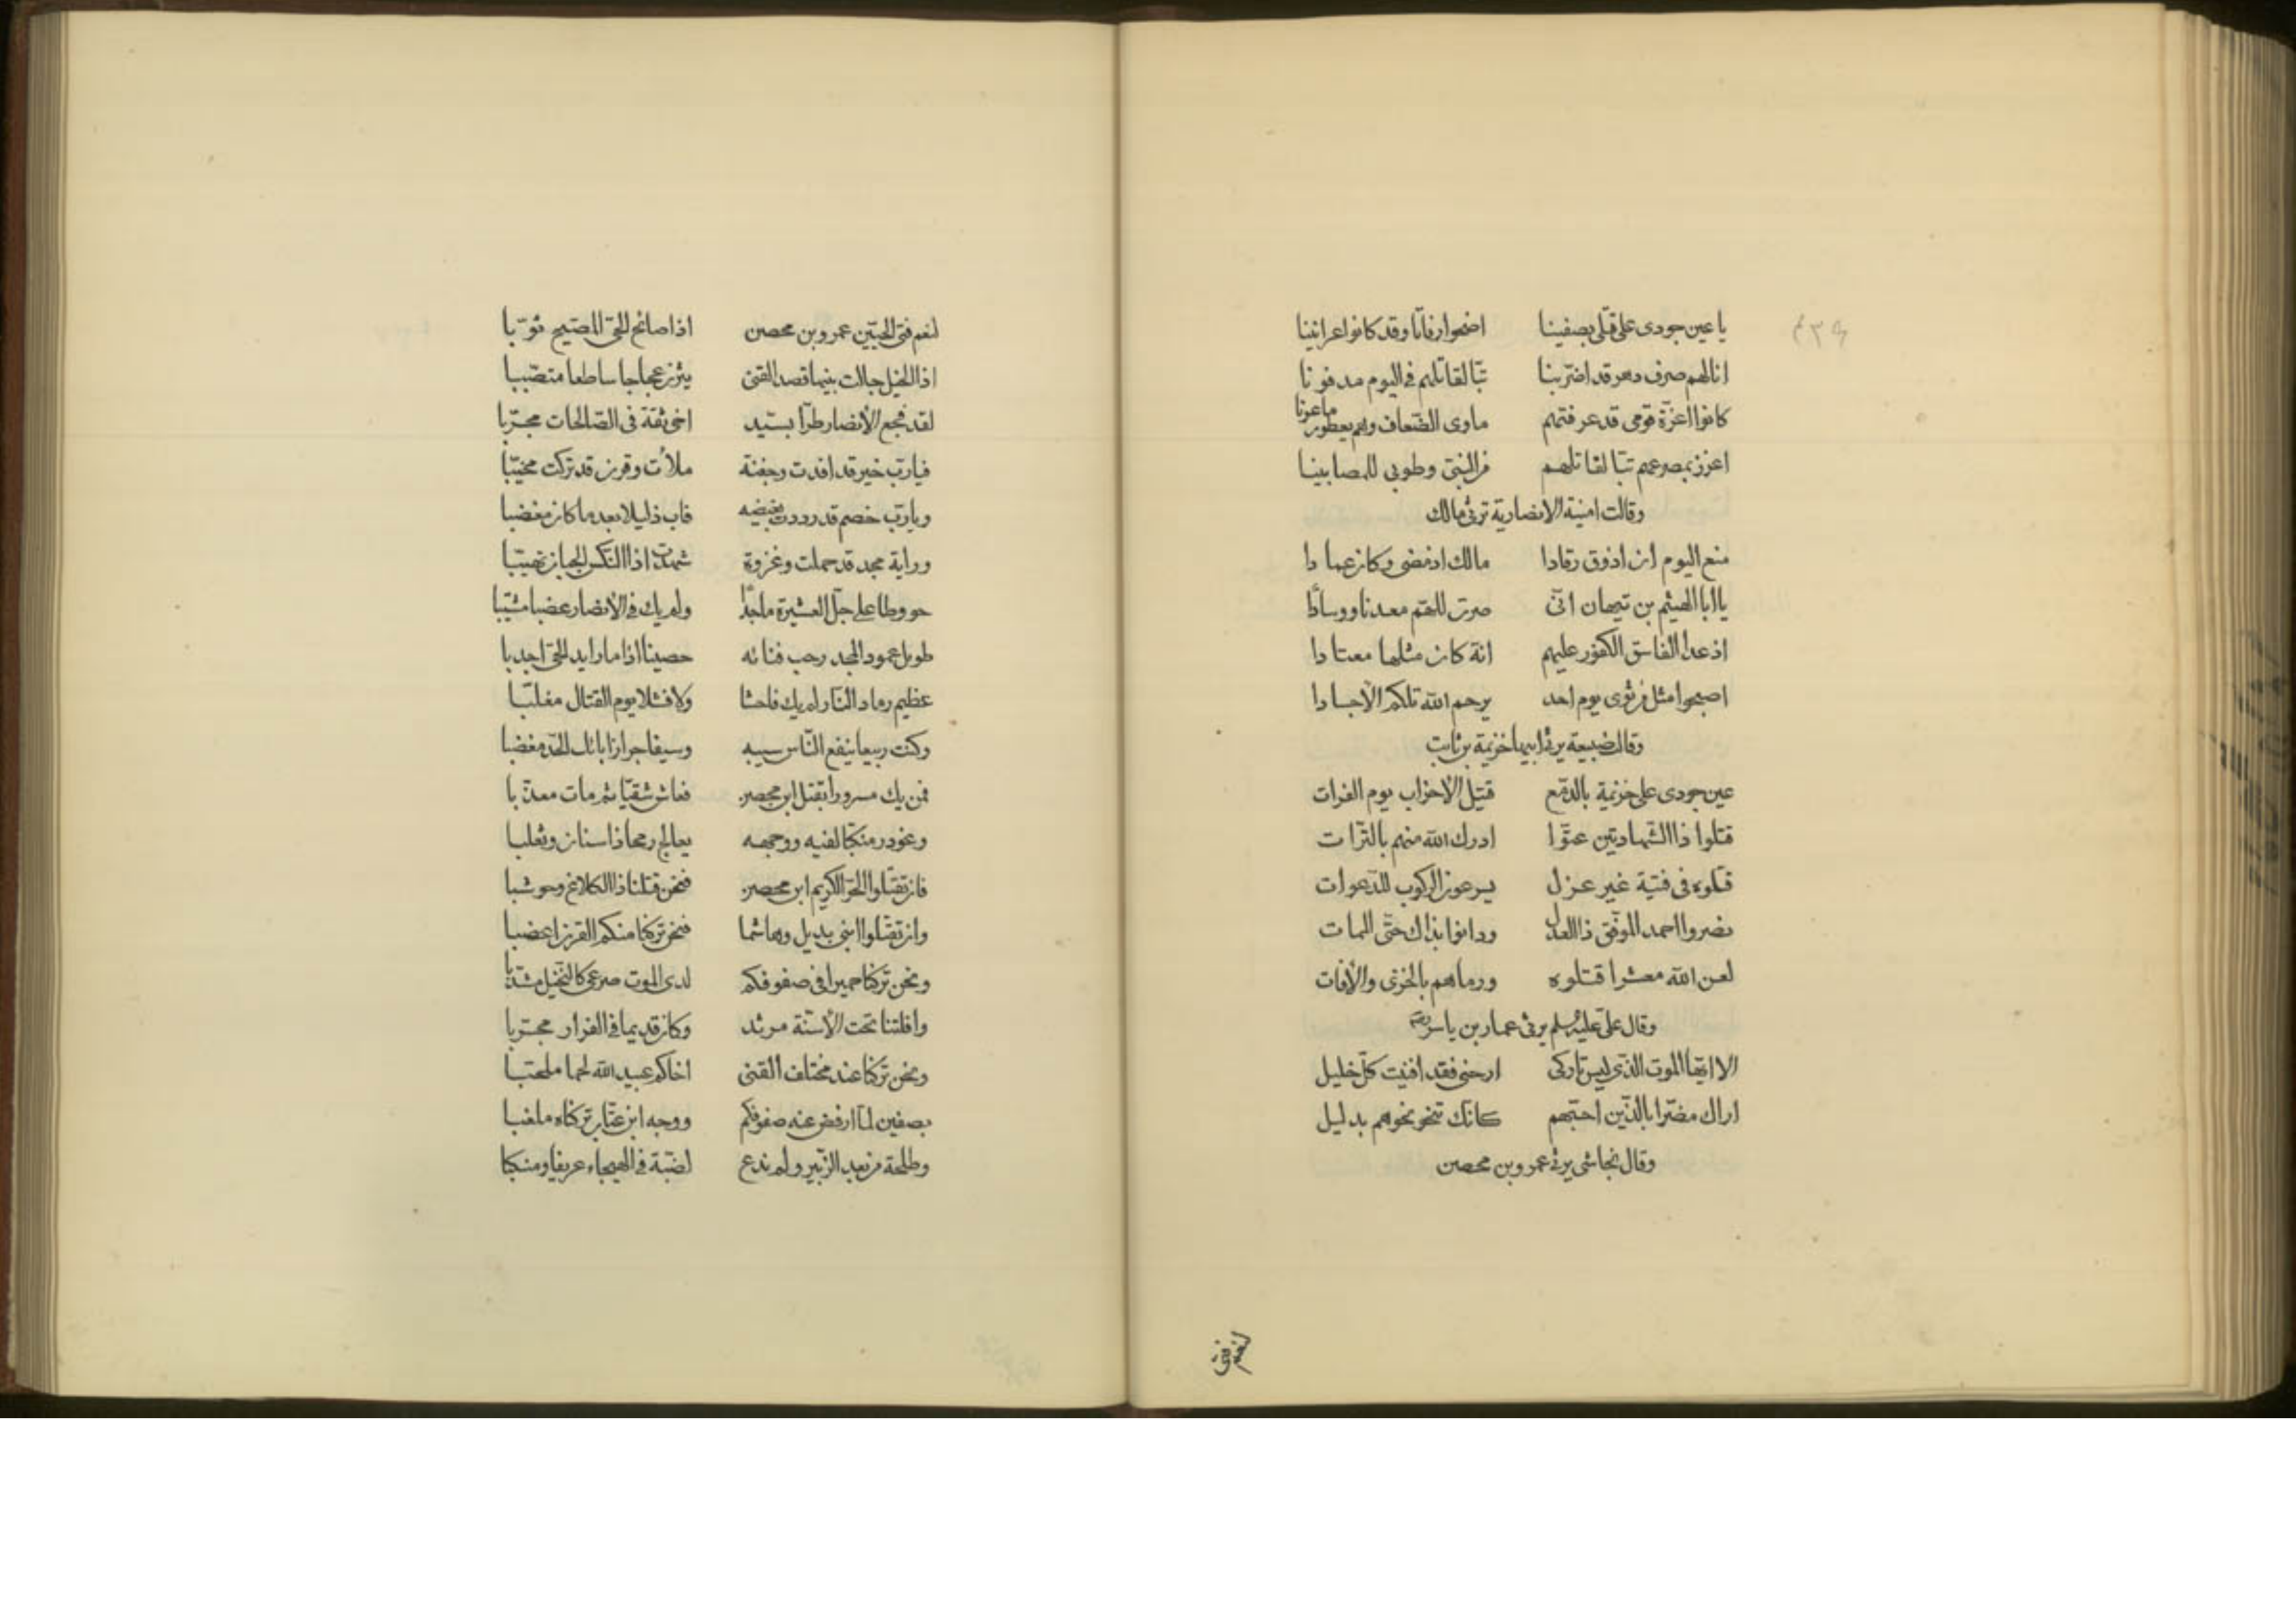 يا عين جودى على قتلى بصفينا اضحوا رفاتا وقد كانوا عرانينا
انا لهم صرف دهر قد اضر بنا تبّا لقاتلهم فى اليوم مدفونا
كانوا اعزّة قومى قد عرفتهم ماوى الضّعاف وهم يعطون ماعونا
اعزز بمصرعهم تبّا لقاتلهم من النبىّ وطوبى للمصابينا
وقالت امنية الانصارية ترثى مالك
منع اليوم ان اذوق رقادا مالك اذ مضى وكان عمادا
يا ابا الهيثم بن تيهان انّى صرت للهمّ معدنا ووسادا
اذ عدا الفاسق الكفور عليهم انه كان مثلها معتادا
اصبحوا مثل من ثوى يوم احد يرحم الله تلكم الاجسادا
وقال ضبيعة يرثى ابيها خزيمة بن ثابت
عين جودى على خزيمة بالدّمع قتيل الاحزاب يوم الفرات
قتلوا ذا الشّهادتين عتوّا ادرك الله منهم بالتّرات
قتلوه فى فتية غير عزل يسرعون الركوب للدّعوات
نصروا احمد الموفّق ذا العدل ودانوا بذاك حتّى الممات
لعن الله معشرا قتلوه ورماهم بالخزى والآفات
وقال على عليه السلم يرثى عمار بن ياسر
الا ايّها الموت الّذى ليس تاركى ارحنى فقد افنيت كلّ خليل
اراك مضرّا بالّذين احبّهم كانّك تنحو نحوهم بدليل
وقال نجاشى يرثى عمرو بن محصن
لنعم فتى
لنعم فتى الحيّين عمرو بن محصن اذا صائح الحىّ المصبّح ثوّبا
اذا الخيل جالت بينها قصد القنى يثرن عجاجا ساطعا متنصّبا
لقد فجع الأنصار طرّا بسيّد اخى ثقة فى الصّالحات مجرّبا
فيا ربّ خير قد افدت وجفنة ملأت وقرن قد تركت مخيّبا
ويا ربّ خصم قد رددت بغيضه فاب ذليلا بعد ما كان مغضبا
وراية مجد قد حملت وغزوة شهدت اذا النّكس الجبان تهيّبا
حووطا على جلّ العشيرة ماجدًا ولم يك فى الأنصار عضبا مشيّبا
طويل عمود المجد رحب فنائه حصينا اذا ما رايد الحىّ اجدبا
عظيم رماد النّار لم يك فاحشا ولا فشلا يوم القتال مغلّبا
وكنت ربيعا ينفع النّاس سيبه وسيفا جرازا باتك الحدّ مغضبا
فمن يك مسرورا بقتل ابن محصن فعاش شقيّا ثم مات معذّبا
وغودر منكبّا لفيه ووجهه يعالج رمحا ذا سنان وثعلبا
فان تقتلوا الحرّ الكريم ابن محصن فنحن قتلنا ذا الكلاع وحوشبا
وان تقتلوا ابنى بديل وهاشما فنحن تركنا منكم القرن اعضبا
ونحن تركنا حميرا فى صفوفكم لدى الموت صرعى كالنّخيل مشذّبا
وافلتنا تحت الأسنّة مرثد وكان قديما فى الفرار مجرّبا
ونحن تركنا عند مختلف القنى اخاكم عبيد الله لحما ملحّبا
بصفين لمّا ارفض عنه صفوفكم ووجه ابن عتّاب تركناه ملغبا
وطلحة من بعد الزّبير ولم ندع لضبّة فى الهيجاء عريفا ومنكبا